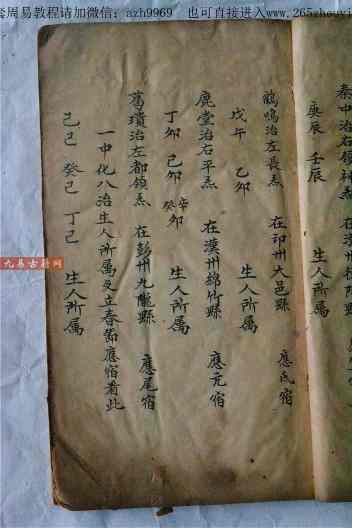 套周易教程请加微信：azh9969 也可直接进入www.265zhouyi
秦中治右領神炁 在漢州德陽縣
庚辰 壬辰
鶴鳴治左長炁 在卭州大邑縣 應氐宿
戊午 乙卯 生人所属
鹿堂治右平炁 在漢州綿竹縣 應亢宿
丁卯 己卯 癸卯 辛 生人所属
葛璝治左都領炁 在彭州九隴縣 應尾宿
一中化八治生人所属受立春節應宿看此
己巳 癸巳 丁巳 生人所属
九易古籍网